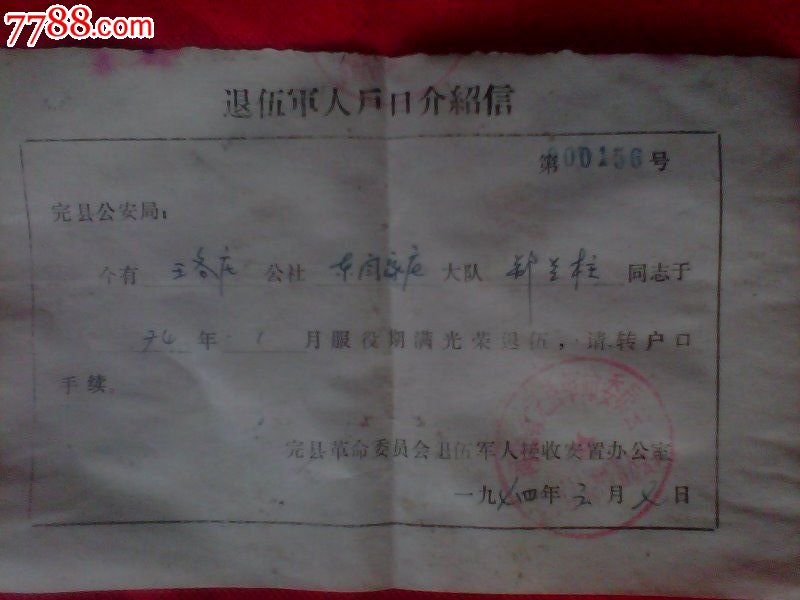 7788.com
退伍軍人戶口介紹信
第000156号
完县公安局：
今有 王各庄 公社 东阎家庄 大队 兰柱 同志于
74 年 1 月服役期满光荣退伍，请转户口
手续。
完县革命委员会退伍军人接收安置办公室
一九七四年 三 月 日